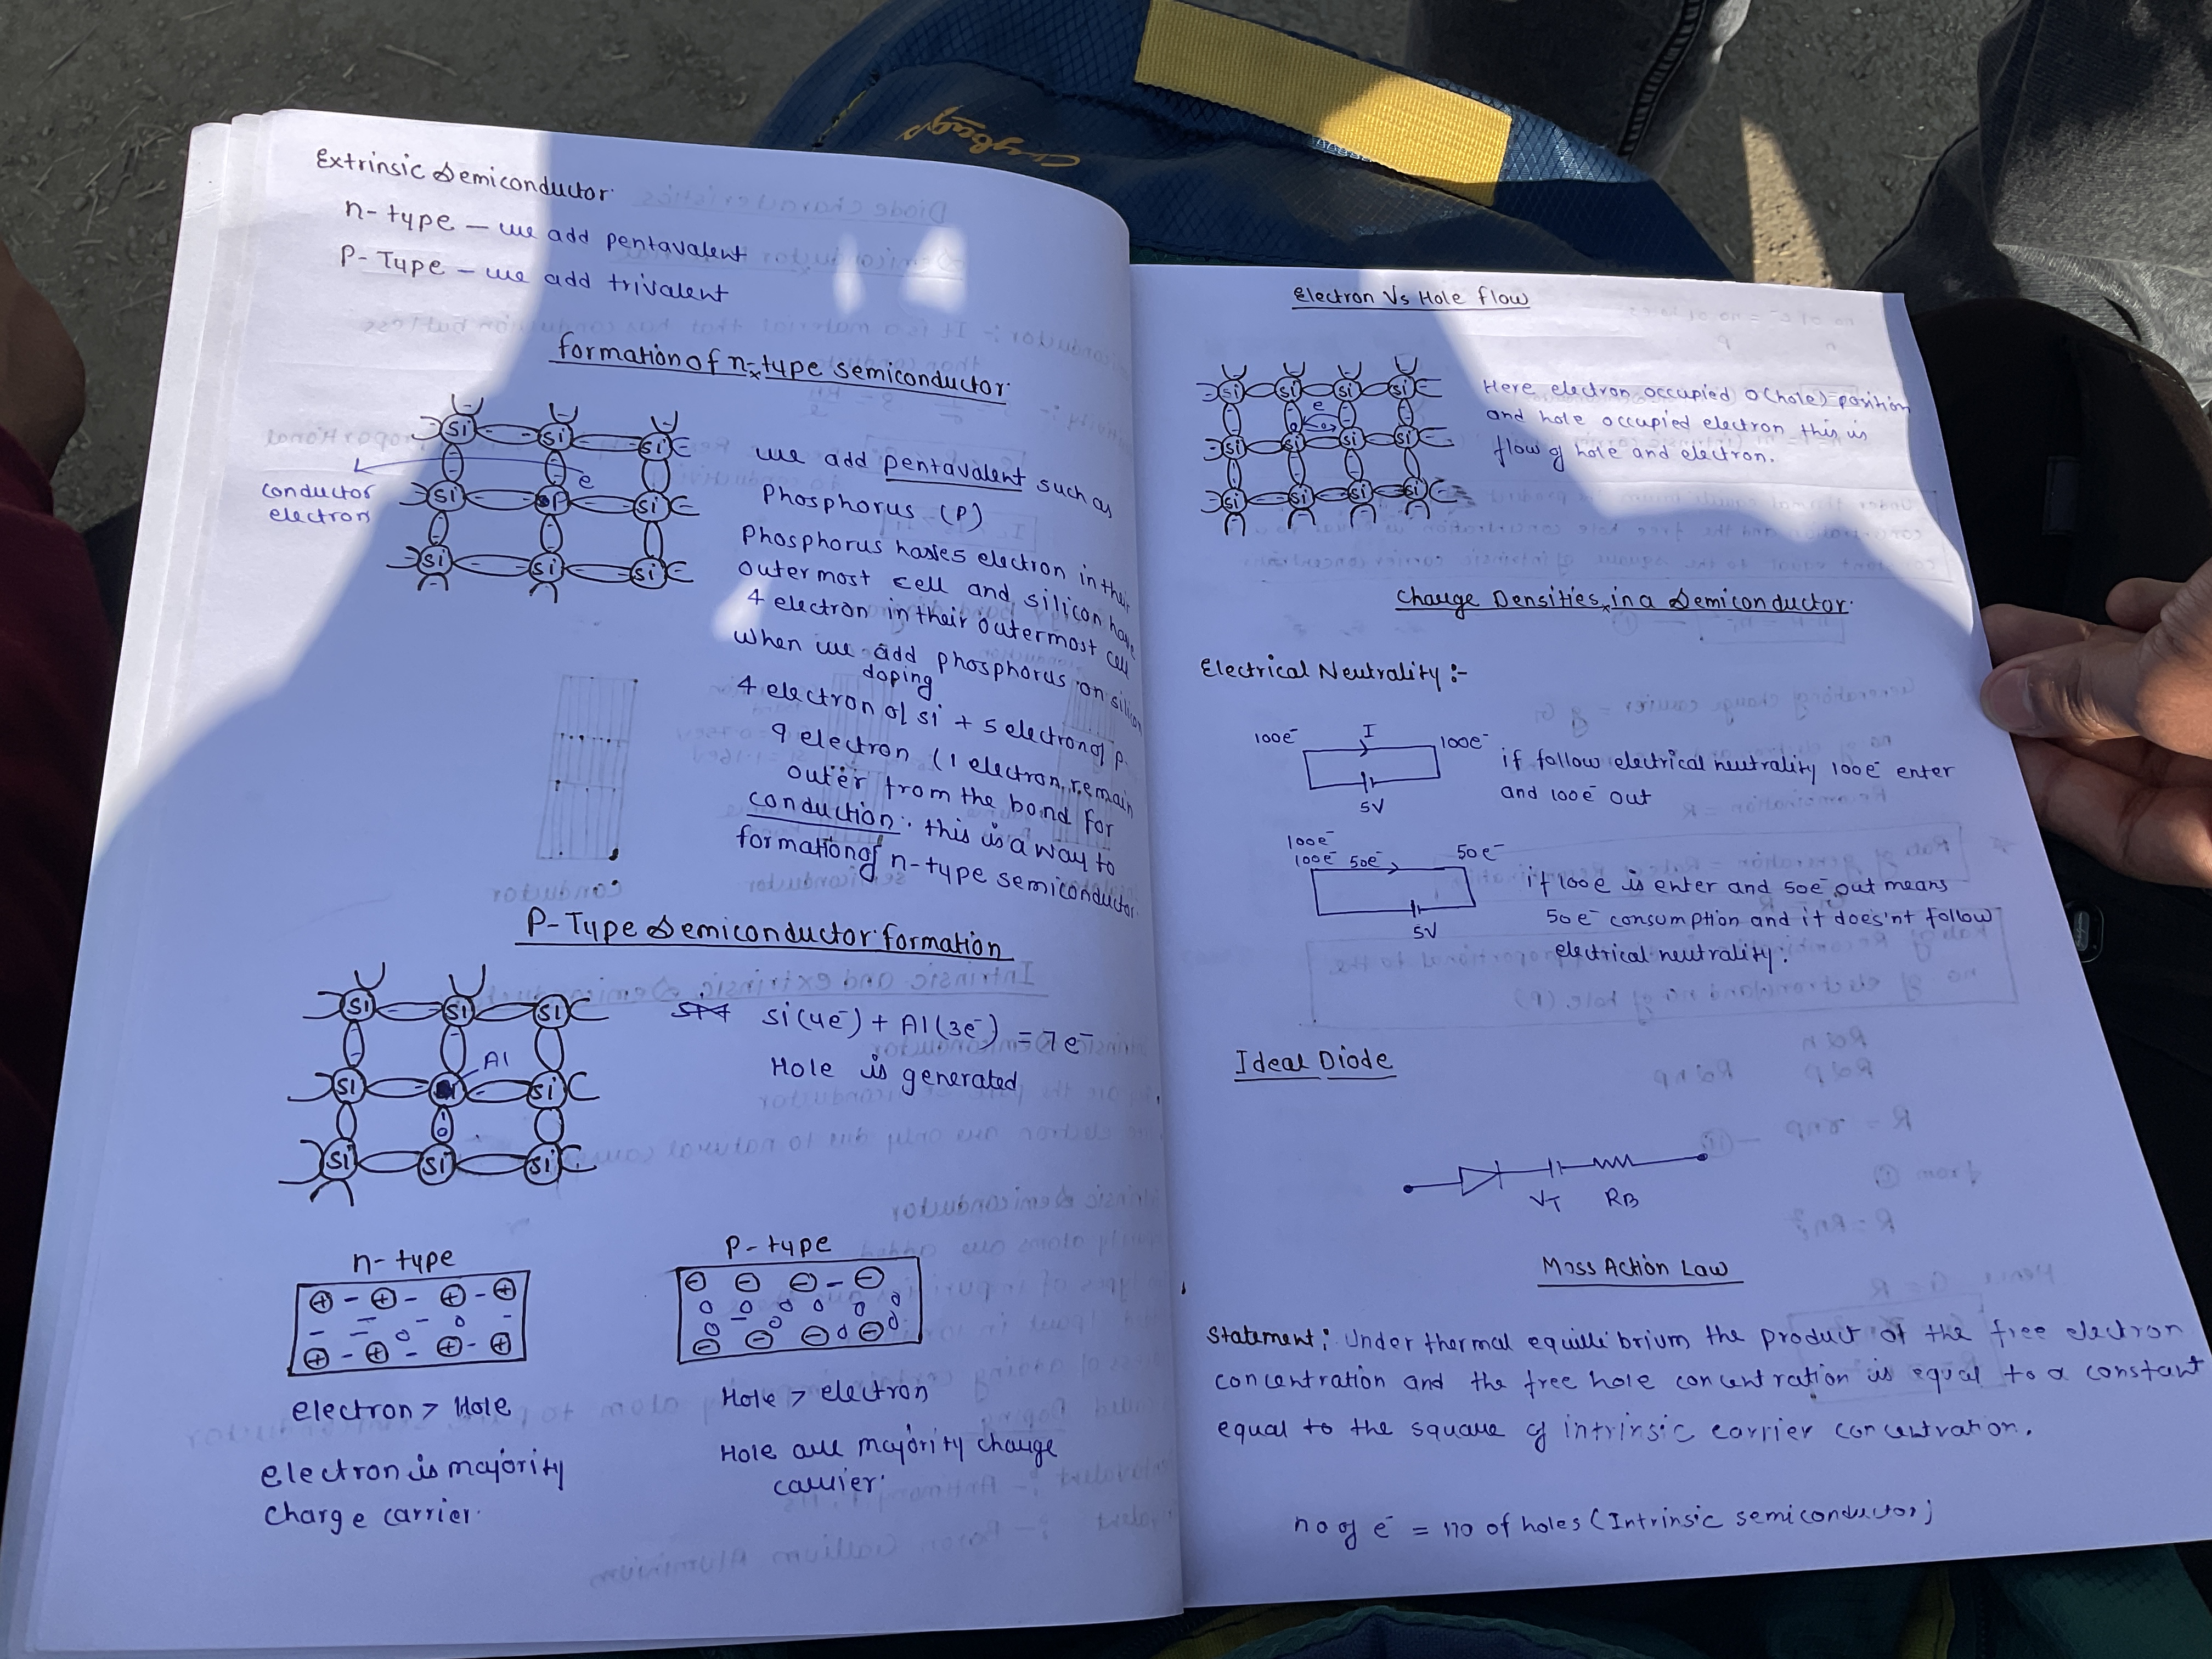 Extrinsic Semiconductor
n-type — we add pentavalent
P-Type — we add trivalent
formation of n-type semiconductor
Si Si Si
Si P Si
Si Si Si
e
conductor
electron
we add pentavalent such as
Phosphorus (P)
Phosphorus has 5 electron in their
outermost cell and silicon have
4 electron in their outermost cell
when we add phosphorus on silicon
doping
4 electron of si + 5 electron of P
9 electron (1 electron remain
outer from the bond for
conduction. this is a way to
formation of n-type semiconductor.
P-Type Semiconductor formation
Si Si Si
Si Al Si
Si Si Si
Si(4e⁻) + Al(3e⁻) = 7e⁻
Hole is generated
n-type
electron > Hole
electron is majority
charge carrier.
P-type
Hole > electron
Hole are majority charge
carrier.
Electron Vs Hole flow
Si Si Si Si
e
Si Si Si Si
Si Si Si Si
Here electron occupied o(hole) position
and hole occupied electron this is
flow of hole and electron.
Charge Densities in a Semiconductor
Electrical Neutrality :-
100e⁻ I 100e⁻
5V
if follow electrical neutrality 100e⁻ enter
and 100e⁻ out
100e⁻
100e⁻ 50e⁻ 50e⁻
5V
if 100e is enter and 50e⁻ out means
50e⁻ consumption and it does'nt follow
electrical neutrality.
Ideal Diode
VT RB
Mass Action Law
Statement: Under thermal equillibrium the product of the free electron
concentration and the free hole concentration is equal to a constant
equal to the square of intrinsic carrier concentration.
no of e⁻ = no of holes (Intrinsic semiconductor)